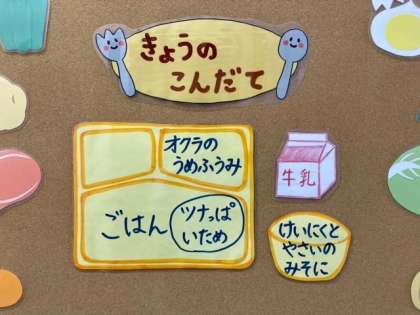 きょうの
こんだて
オクラの
うめふうみ
ごはん
ツナっぱ
いため
牛乳
けいにくと
やさいの
みそに